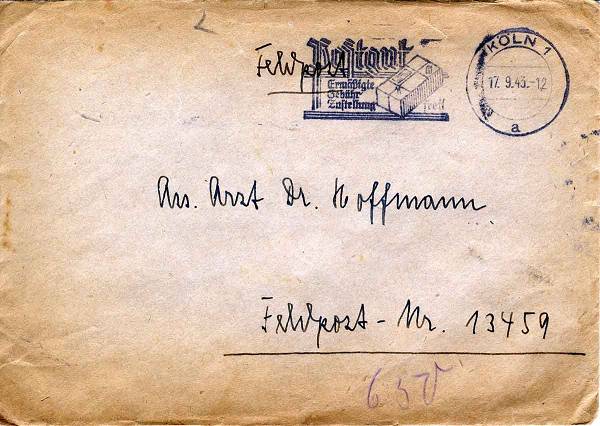 Feldpost
Postgut
Ermäßigte
Gebühr
Zustellung frei!
KÖLN 1
17. 9. 43.-12
a
Ass. Arzt Dr. Hoffmann
Feldpost-Nr. 13459